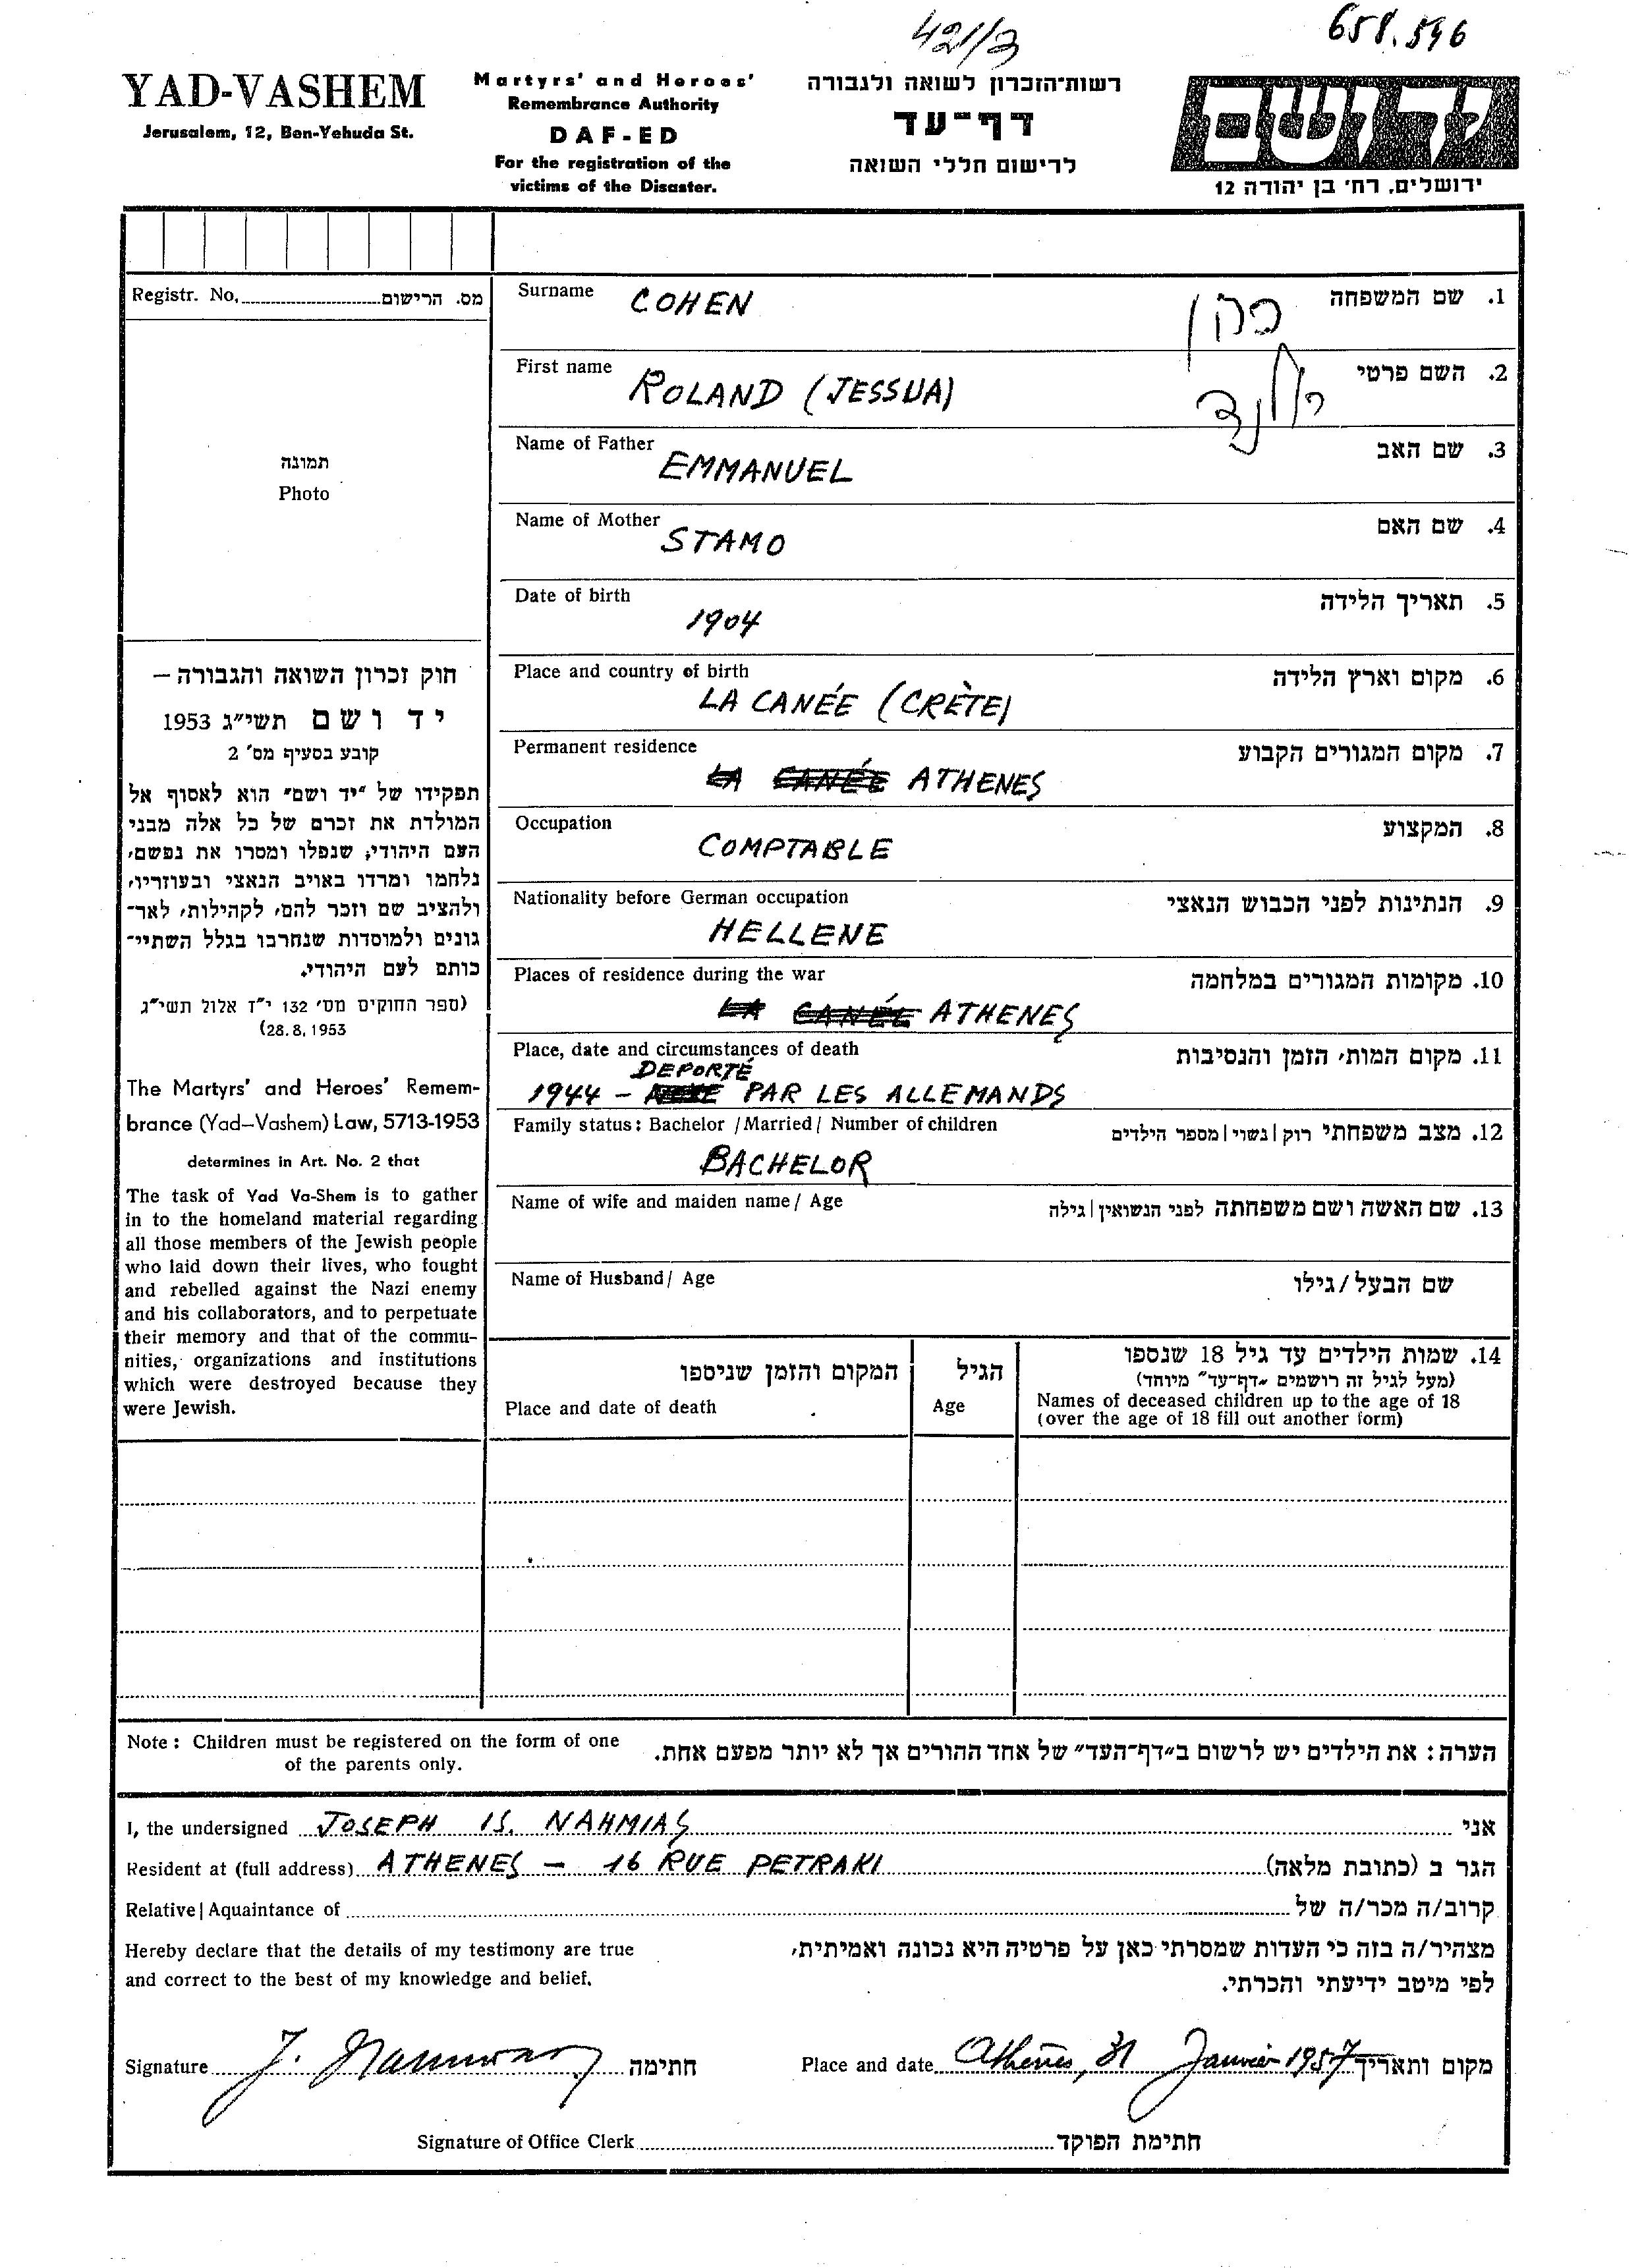 421/3
658.596
YAD-VASHEM
Jerusalem, 12, Ben-Yehuda St.
Martyrs' and Heroes'
Remembrance Authority
DAF-ED
For the registration of the
victims of the Disaster.
רשות־הזכרון לשואה ולגבורה
דף־עד
לרישום חללי השואה
ידושם
ירושלים, רח' בן יהודה 12
Registr. No. מס. הרישום
תמונה
Photo
חוק זכרון השואה והגבורה –
יד ושם תשי"ג 1953
קובע בסעיף מס' 2
תפקידו של "יד ושם" הוא לאסוף אל
המולדת את זכרם של כל אלה מבני
העם היהודי, שנפלו ומסרו את נפשם,
נלחמו ומרדו באויב הנאצי ובעוזריו,
ולהציב שם וזכר להם, לקהילות, לאר־
גונים ולמוסדות שנחרבו בגלל השתיי־
כותם לעם היהודי.
(ספר החוקים מס' 132 י"ד אלול תשי"ג
28.8.1953)
The Martyrs' and Heroes' Remem-
brance (Yad–Vashem) Law, 5713-1953
determines in Art. No. 2 that
The task of Yad Va-Shem is to gather
in to the homeland material regarding
all those members of the Jewish people
who laid down their lives, who fought
and rebelled against the Nazi enemy
and his collaborators, and to perpetuate
their memory and that of the commu-
nities, organizations and institutions
which were destroyed because they
were Jewish.
Surname 1. שם המשפחה
COHEN כהן
First name 2. השם פרטי
ROLAND (JESSUA) רולנד
Name of Father 3. שם האב
EMMANUEL
Name of Mother 4. שם האם
STAMO
Date of birth 5. תאריך הלידה
1904
Place and country of birth 6. מקום וארץ הלידה
LA CANÉE (CRÈTE)
Permanent residence 7. מקום המגורים הקבוע
LA CANÉE ATHENES
Occupation 8. המקצוע
COMPTABLE
Nationality before German occupation 9. הנתינות לפני הכבוש הנאצי
HELLENE
Places of residence during the war 10. מקומות המגורים במלחמה
LA CANÉE ATHENES
Place, date and circumstances of death 11. מקום המות, הזמן והנסיבות
DEPORTÉ
1944 – PAR LES ALLEMANDS
Family status: Bachelor / Married / Number of children 12. מצב משפחתי רוק | נשוי | מספר הילדים
BACHELOR
Name of wife and maiden name / Age 13. שם האשה ושם משפחתה לפני הנשואין | גילה
Name of Husband / Age שם הבעל / גילו
המקום והזמן שניספו
Place and date of death
הגיל
Age
14. שמות הילדים עד גיל 18 שנספו
(מעל לגיל זה רושמים "דף־עד" מיוחד)
Names of deceased children up to the age of 18
(over the age of 18 fill out another form)
Note: Children must be registered on the form of one
of the parents only.
הערה: את הילדים יש לרשום ב"דף־העד" של אחד ההורים אך לא יותר מפעם אחת.
I, the undersigned JOSEPH IS. NAHMIAS אני
Resident at (full address) ATHENES – 16 RUE PETRAKI הגר ב (כתובת מלאה)
Relative | Aquaintance of קרוב/ה מכר/ה של
Hereby declare that the details of my testimony are true
and correct to the best of my knowledge and belief.
מצהיר/ה בזה כי העדות שמסרתי כאן על פרטיה היא נכונה ואמיתית,
לפי מיטב ידיעתי והכרתי.
Signature J. Nahmias חתימה
Place and date Athènes, 31 Janvier 1957 מקום ותאריך
Signature of Office Clerk חתימת הפוקד